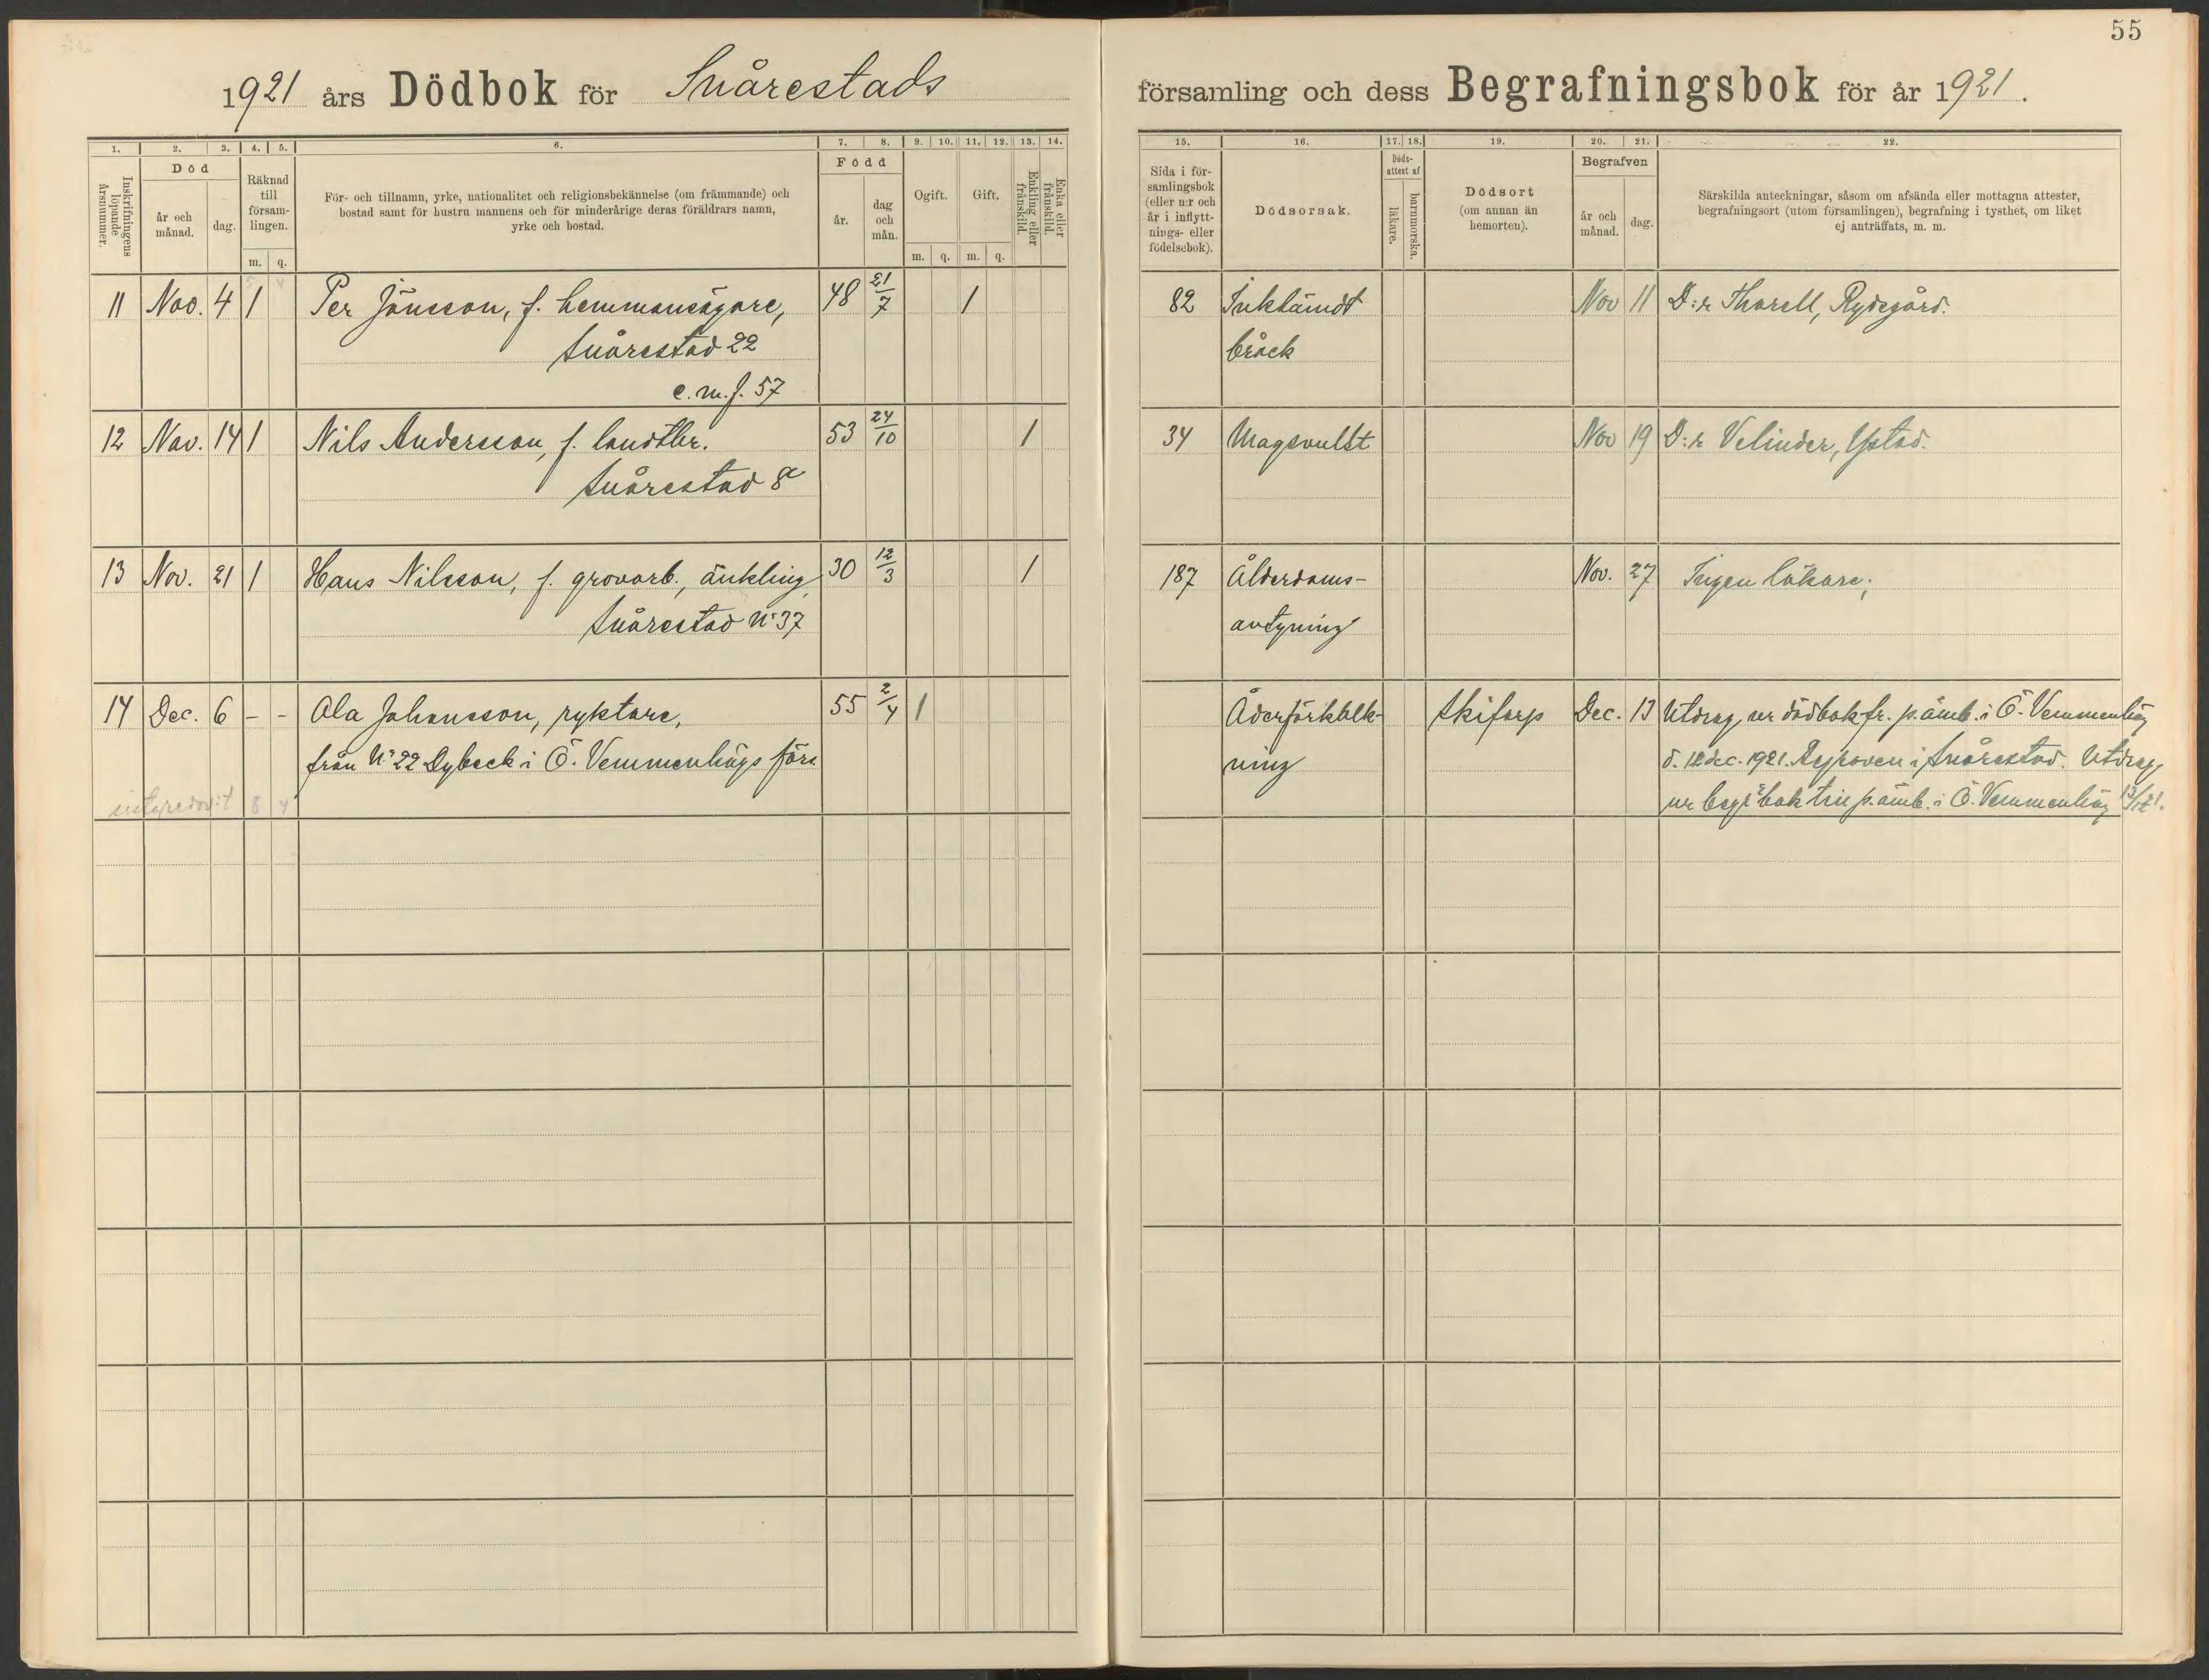 55
1921 års Dödbok för Snårestads
församling och dess Begrafningsbok för år 1921.
1. 2. 3. 4. 5. 6. 7. 8. 9. 10. 11. 12. 13. 14.
Inskrifningens löpande årsnummer.
Död
år och månad.
dag.
Räknad till församlingen.
m. q.
För- och tillnamn, yrke, nationalitet och religionsbekännelse (om främmande) och
bostad samt för hustru mannens och för minderårige deras föräldrars namn,
yrke och bostad.
Född
år.
dag och mån.
Ogift.
m. q.
Gift.
m. q.
Enkling eller frånskild.
Enka eller frånskild.
15. 16. 17. 18. 19. 20. 21. 22.
Sida i för-
samlingsbok
(eller n:r och
år i inflytt-
nings- eller
födelsebok).
Dödsorsak.
Döds-
attest af
läkare.
barnmorska.
Dödsort
(om annan än
hemorten).
Begrafven
år och månad.
dag.
Särskilda anteckningar, såsom om afsända eller mottagna attester,
begrafningsort (utom församlingen), begrafning i tysthet, om liket
ej anträffats, m. m.
11 Nov. 4 1 Per Jönsson, f. hemmansägare, 48 21/7 1
Snårestad 22
e. m. f. 57
82 Inklämdt Nov 11 D:r Thorell, Rydsgård.
bråck
12 Nov. 14 1 Nils Andersson, f. landtbr. 53 24/10 1
Snårestad 8
34 Magsvulst Nov 19 D:r Velinder, Ystad.
13 Nov. 21 1 Hans Nilsson, f. grovarb., änkling 30 12/3 1
Snårestad No 37
187 Ålderdoms- Nov. 27 Ingen läkare;
avtyning
14 Dec. 6 - - Ola Johansson, ryktare, 55 2/4 1
från No 22 Dybeck i Ö. Vemmenhögs förs
8 4
Åderförkalk- Skifarp Dec. 13 Utdrag ur dödbok fr. p. ämb. i Ö. Vemmenhög
ning d. 12 dec. 1921. Begraven i Snårestad. Utdrag
ur begr. bok till p. ämb. i Ö. Vemmenhög 13/12 21.